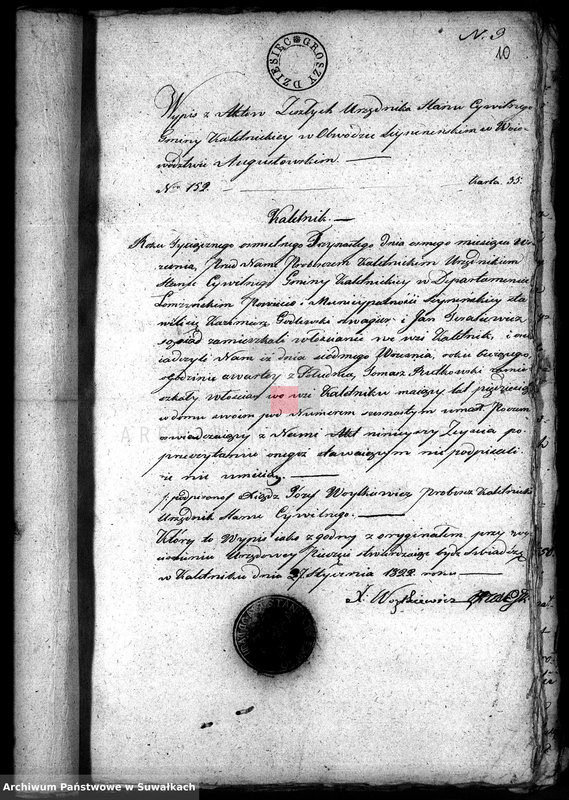 N. 9
10
DZIESIĘC GROSZY
Wypis z Aktów Zeszłych Urzędnika Stanu Cywilnego
Gminy Kaletnickiey w Obwodzie Seyneńskim w Woie-
wodztwie Augustowskim.
Nro 152. Karta. 35.
Kaletnik.
Roku tysiącznego osmsetnego Trzynastego dnia osmego miesiąca Wrze-
śnia, Przed Nami Proboszczem Kaletnickim Urzędnikiem
Stanu Cywilnego Gminy Kaletnickiey w Departamencie
Łomżyńskim Powiecie i Municypalności Seyneńskiey sta-
wili się Kazimierz Godlewski szwagier i Jan
sąsiad zamieszkali włościanie we wsi Kaletnik, i oświ-
adczyli Nam iż dnia siodmego Września, roku bieżącego,
o godzinie czwartey z Południa, Tomasz Rutkowski zamie-
szkały włościan we wsi Kaletniku maiący lat pięćdziesiąt
w domu swoim pod Numerem umarł. Poczem
oświadczaiący z Nami Akt ninieyszy Zeyścia po
przeczytaniu onegoż stawaiącym nie podpisali
że nie umieią.
/: podpisano Xiądz Józef Woytkiewicz Proboszcz Kaletnicki
Urzędnik Stanu Cywilnego.
Który to Wypis iako zgodny z oryginałem przy wy-
ciśnieniu Urzędowey Pieczęci stwierdzaiąc
w Kaletniku dnia 27 Stycznia 1822 roku
X. Woytkiewicz
Archiwum Państwowe w Suwałkach